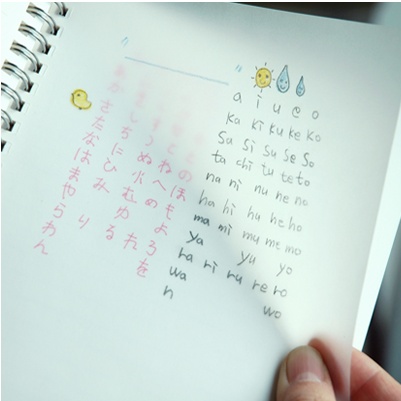 a i u e o
ka ki ku ke ko
sa si su se so
ta chi tu te to
na ni nu ne no
ha hi hu he ho
ma mi mu me mo
ya yu yo
ra ri ru re ro
wa wo
n
のほもよろを
ねへめ れ
ぬふむゆる
しちにひみ り
あかさたなはまやらわん